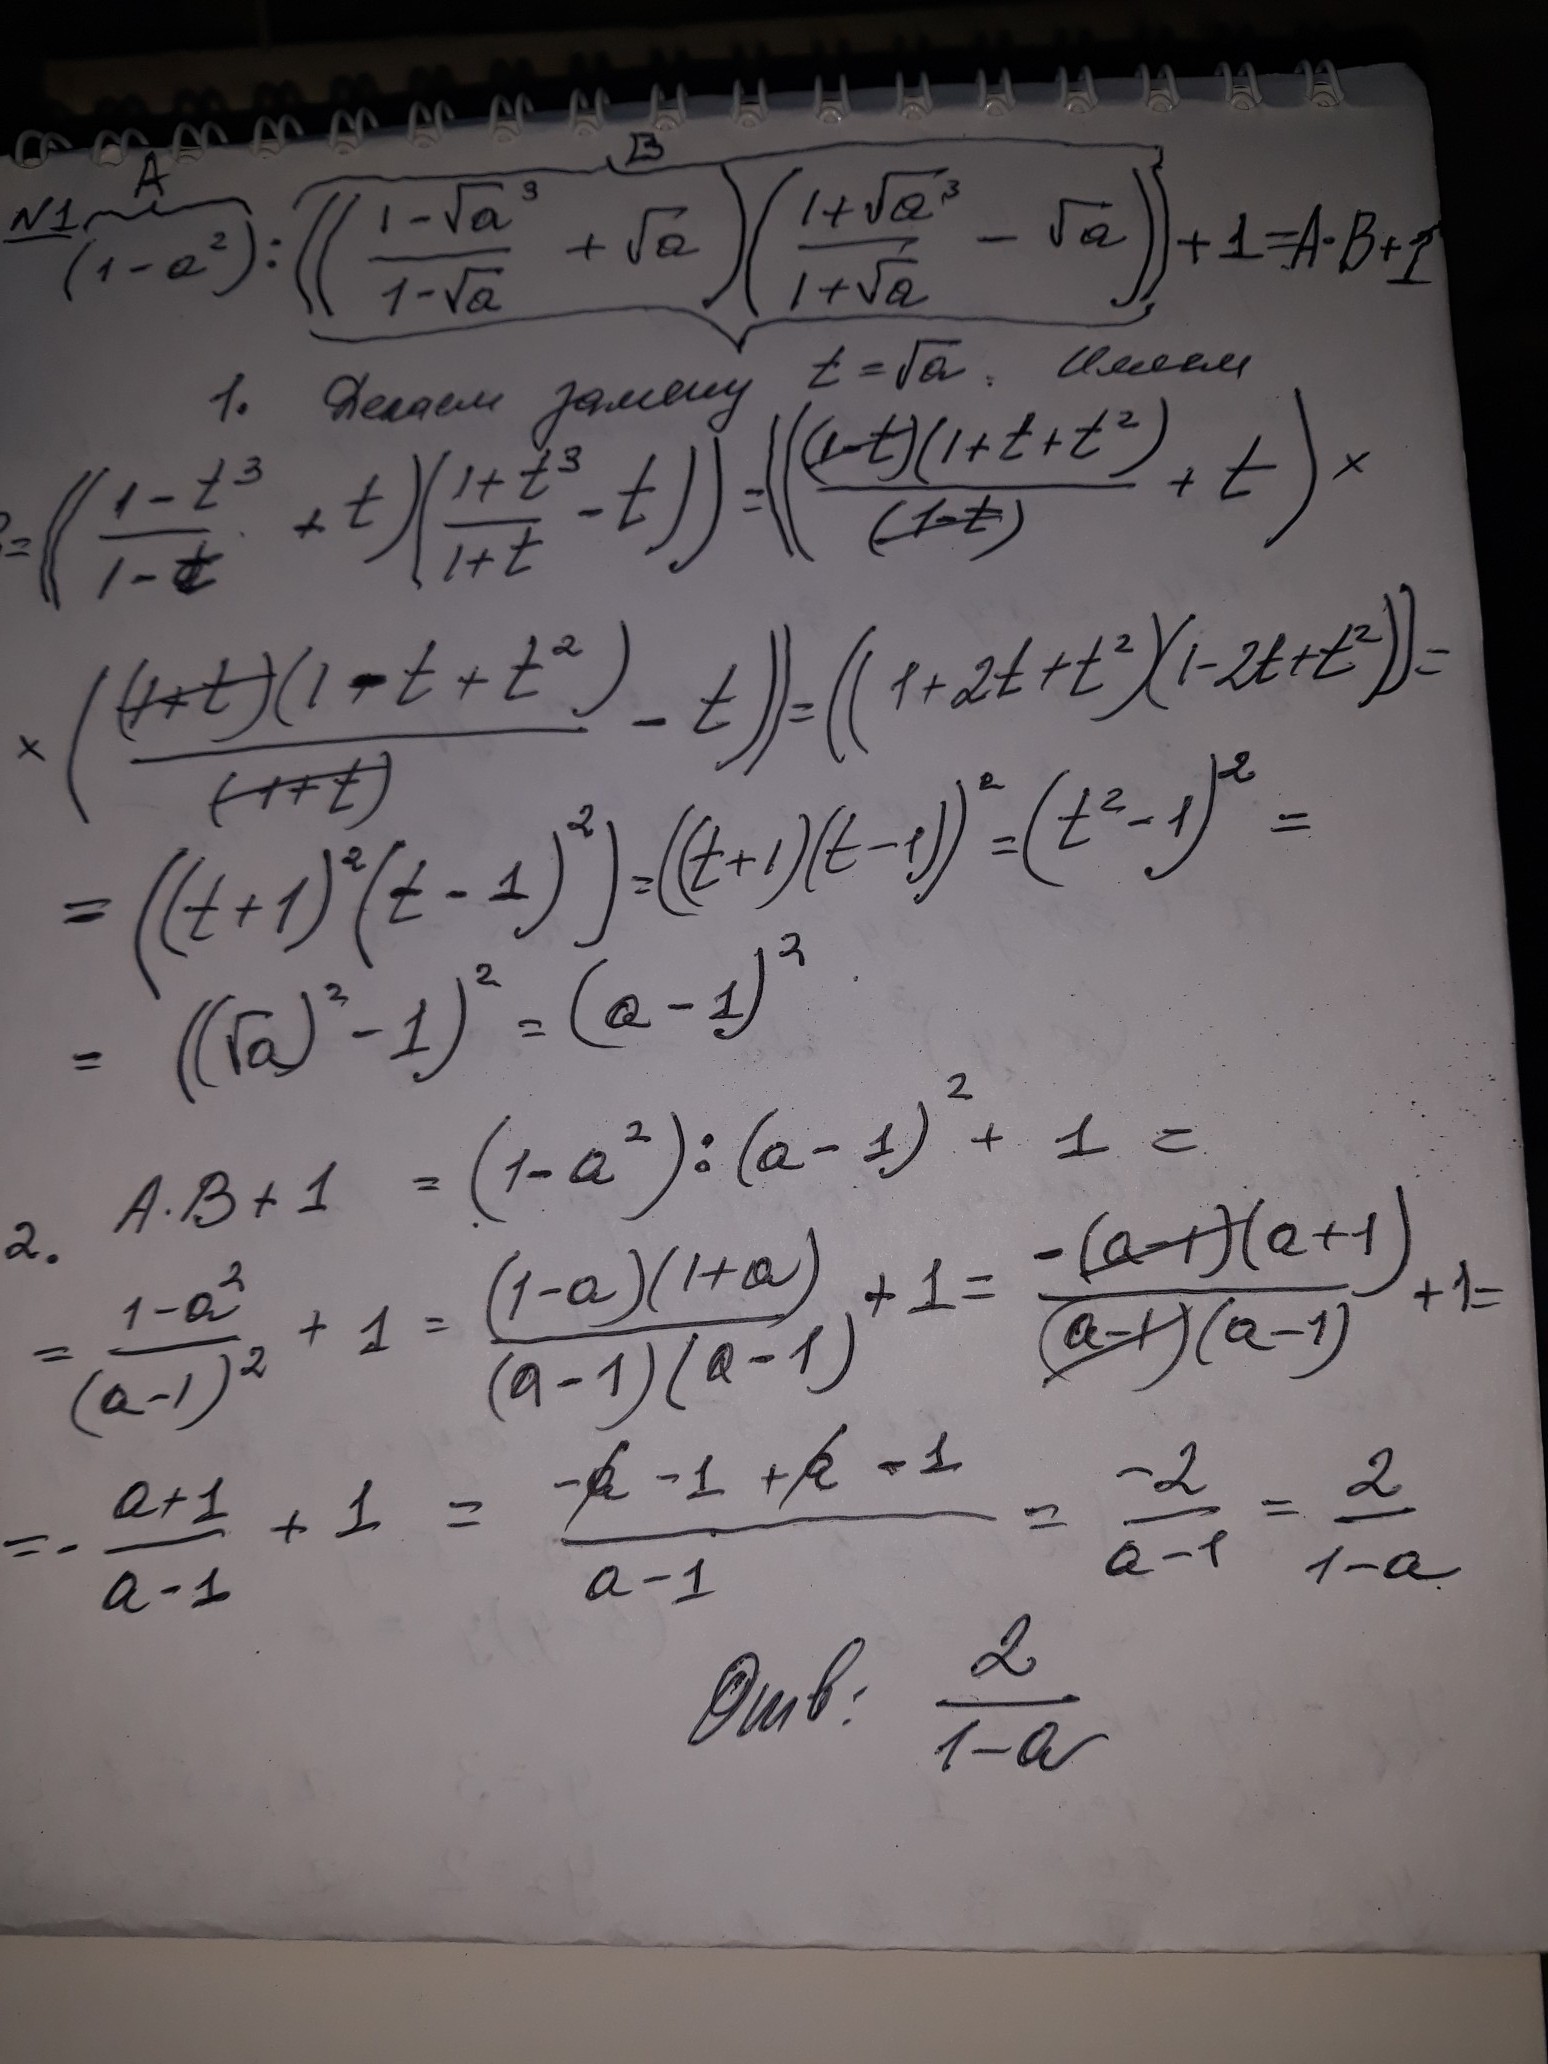 A B
N1 (1-a²):((1-√a³/1-√a + √a)(1+√a³/1+√a - √a))+1=A·B+1
1. Делаем замену t=√a. Имеем
=((1-t³/1-t + t)(1+t³/1+t - t))=(((1-t)(1+t+t²)/(1-t) + t)×
×((1+t)(1-t+t²)/(1+t) - t))=((1+2t+t²)(1-2t+t²))=
=((t+1)²(t-1)²)=((t+1)(t-1))²=(t²-1)²=
=((√a)²-1)²=(a-1)²
2. A·B+1=(1-a²):(a-1)²+1=
=1-a²/(a-1)²+1=(1-a)(1+a)/(a-1)(a-1)+1=-(a-1)(a+1)/(a-1)(a-1)+1=
=-a+1/a-1+1=-a-1+a-1/a-1=-2/a-1=2/1-a
Отв: 2/1-a